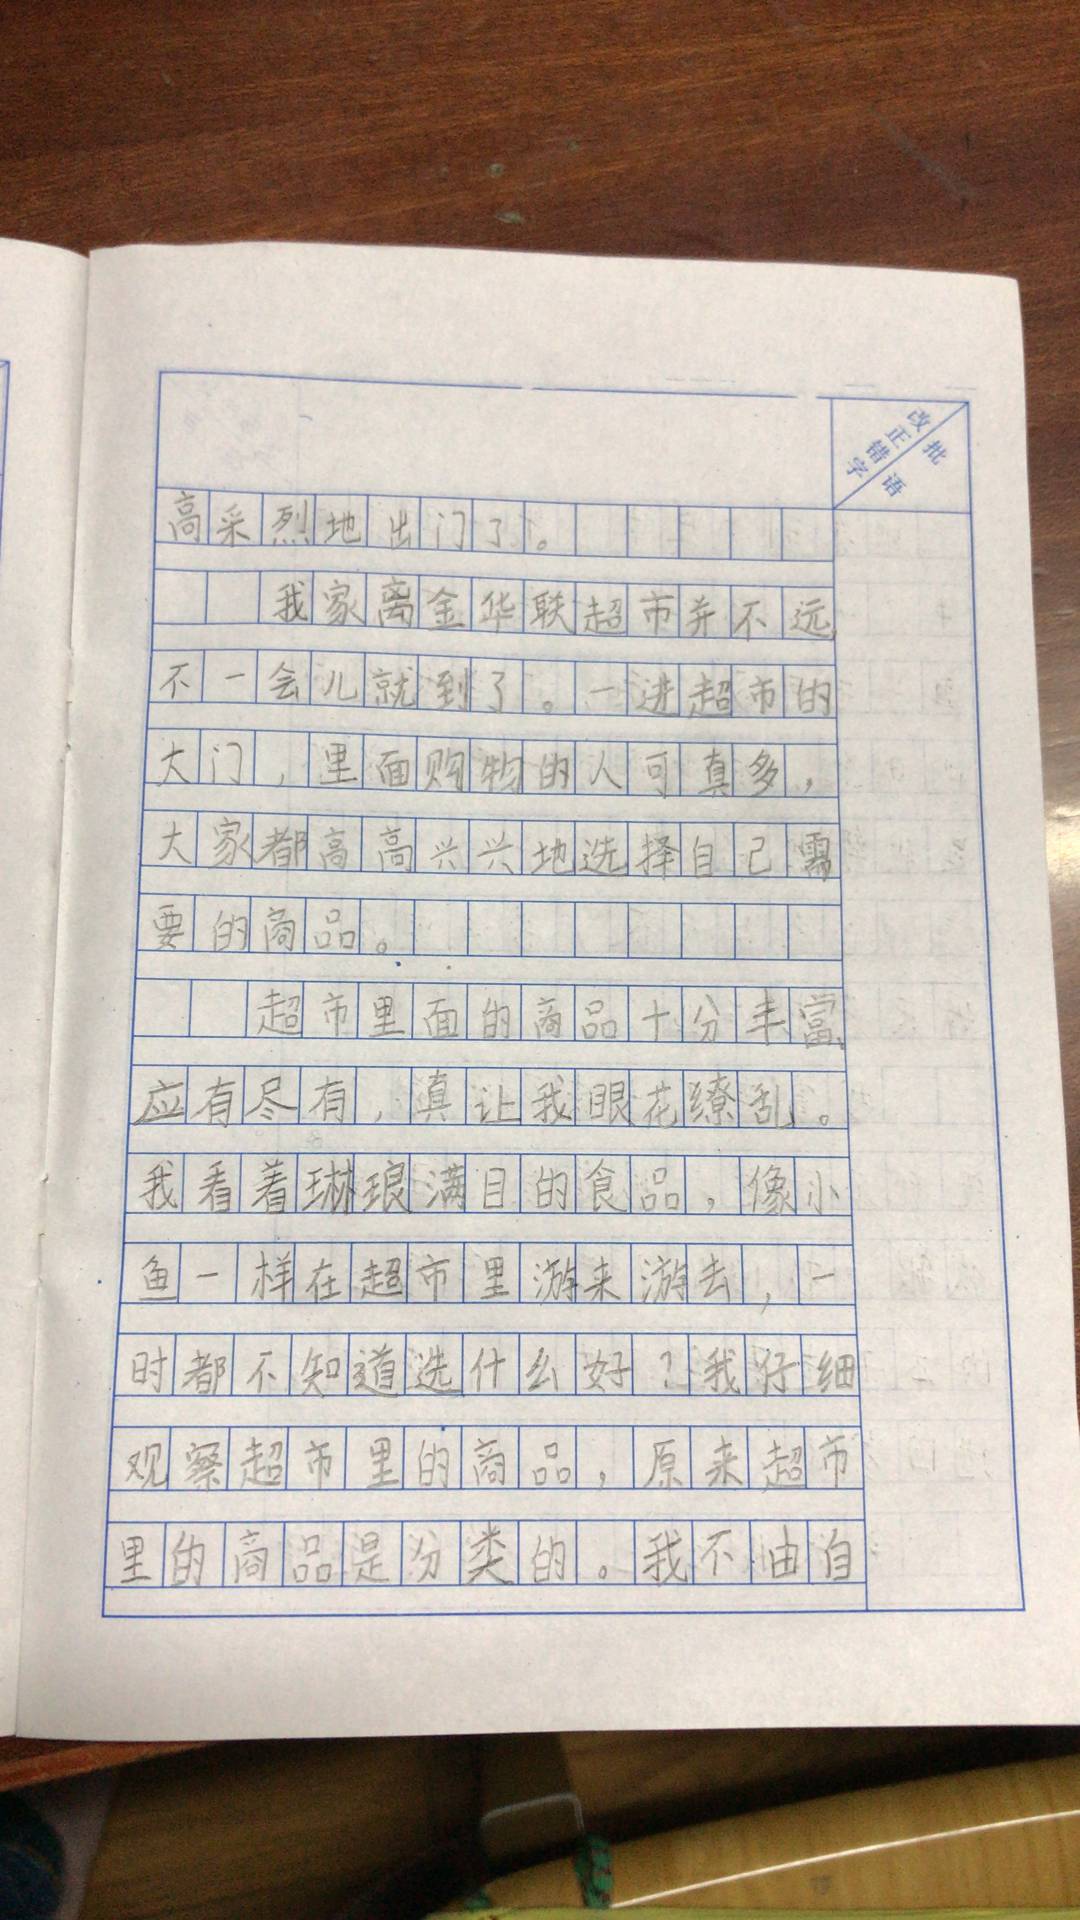 改正错字
批语
高采烈地出门了。
我家离金华联超市并不远
不一会儿就到了。一进超市的
大门，里面购物的人可真多，
大家都高高兴兴地选择自己需
要的商品。
超市里面的商品十分丰富、
应有尽有，真让我眼花缭乱。
我看着琳琅满目的食品，像小
鱼一样在超市里游来游去，一
时都不知道选什么好？我仔细
观察超市里的商品，原来超市
里的商品是分类的。我不由自